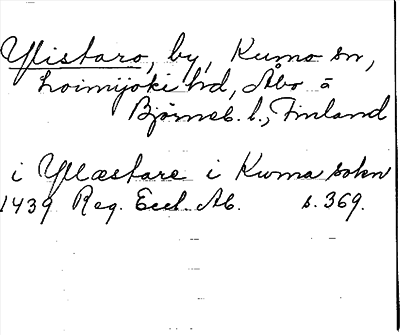 Ylistaro, by, Kumo sn,
Loimijoki hd, Åbo ā
Björneb. l., Finland
i Yllæstare i Kwma sokn
1439 Reg. Eccl. Ab. s. 369.